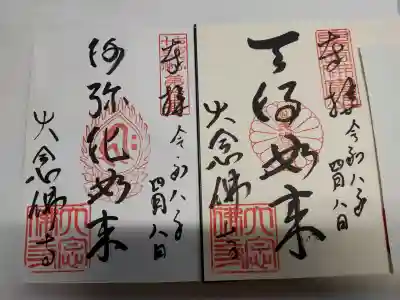 奉拝
令和八年
四月八日
天得如来
大念佛寺
大念
佛寺
奉拝
令和八年
四月八日
阿弥陀如来
大念佛寺
大念
佛寺